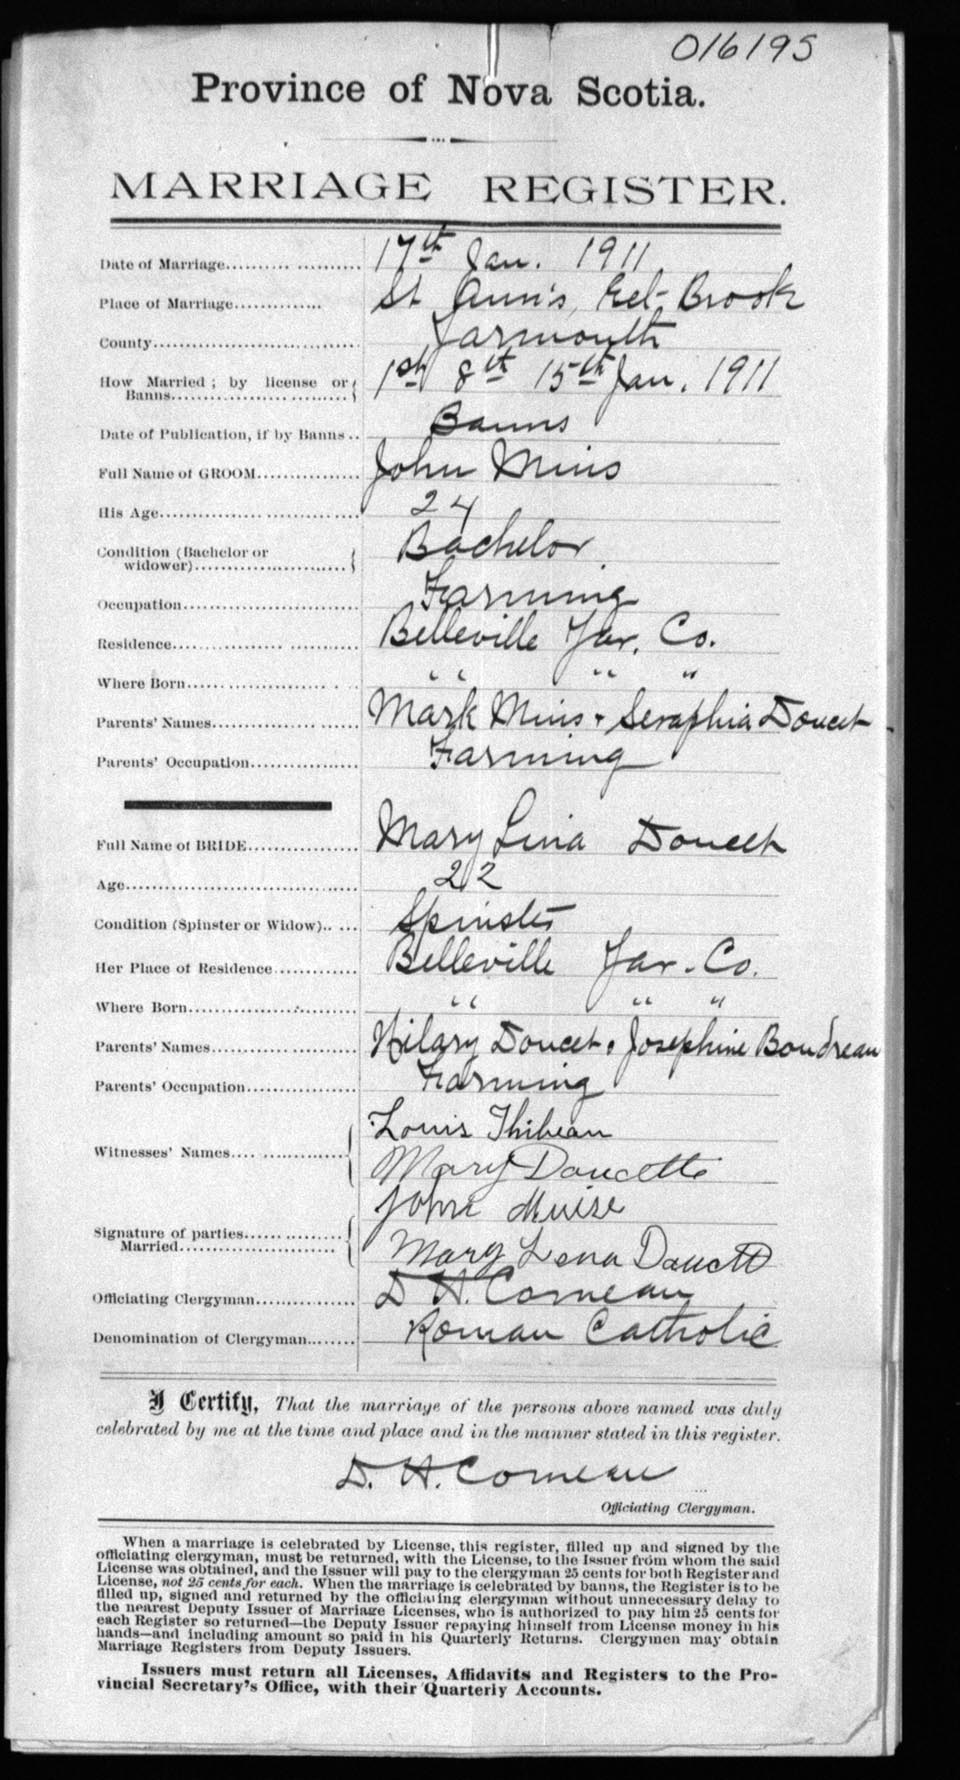 016195
Province of Nova Scotia.
MARRIAGE REGISTER.
Date of Marriage.......... 17th Jan. 1911
Place of Marriage.............. St Ann's, Eel-Brook
County............................... Yarmouth
How Married; by license or 1st 8th 15th Jan. 1911
Banns..........................
Date of Publication, if by Banns.. Banns
Full Name of GROOM................ John Mius
His Age.............................. 24
Condition (Bachelor or Bachelor
widower)........................
Occupation........................... Farming
Residence............................ Belleville Yar. Co.
Where Born.......................... " " "
Parents' Names..................... Mark Mius & Seraphia Doucet
Parents' Occupation................ Farming
Full Name of BRIDE................. Mary Lina Doucet
Age................................... 22
Condition (Spinster or Widow)..... Spinster
Her Place of Residence............. Belleville Yar. Co.
Where Born.......................... " " "
Parents' Names..................... Hilary Doucet & Josephine Boudreau
Parents' Occupation................ Farming
Louis Thibeau
Witnesses' Names.................. Mary Doucette
John Muise
Signature of parties
Married........................ Mary Lena Doucett
Officiating Clergyman............... D H. Comeau
Denomination of Clergyman....... Roman Catholic
I Certify, That the marriage of the persons above named was duly
celebrated by me at the time and place and in the manner stated in this register.
D. H. Comeau
Officiating Clergyman.
When a marriage is celebrated by License, this register, filled up and signed by the
officiating clergyman, must be returned, with the License, to the Issuer from whom the said
License was obtained, and the Issuer will pay to the clergyman 25 cents for both Register and
License, not 25 cents for each. When the marriage is celebrated by banns, the Register is to be
filled up, signed and returned by the officiating clergyman without unnecessary delay to
the nearest Deputy Issuer of Marriage Licenses, who is authorized to pay him 25 cents for
each Register so returned—the Deputy Issuer repaying himself from License money in his
hands—and including amount so paid in his Quarterly Returns. Clergymen may obtain
Marriage Registers from Deputy Issuers.
Issuers must return all Licenses, Affidavits and Registers to the Pro-
vincial Secretary's Office, with their Quarterly Accounts.